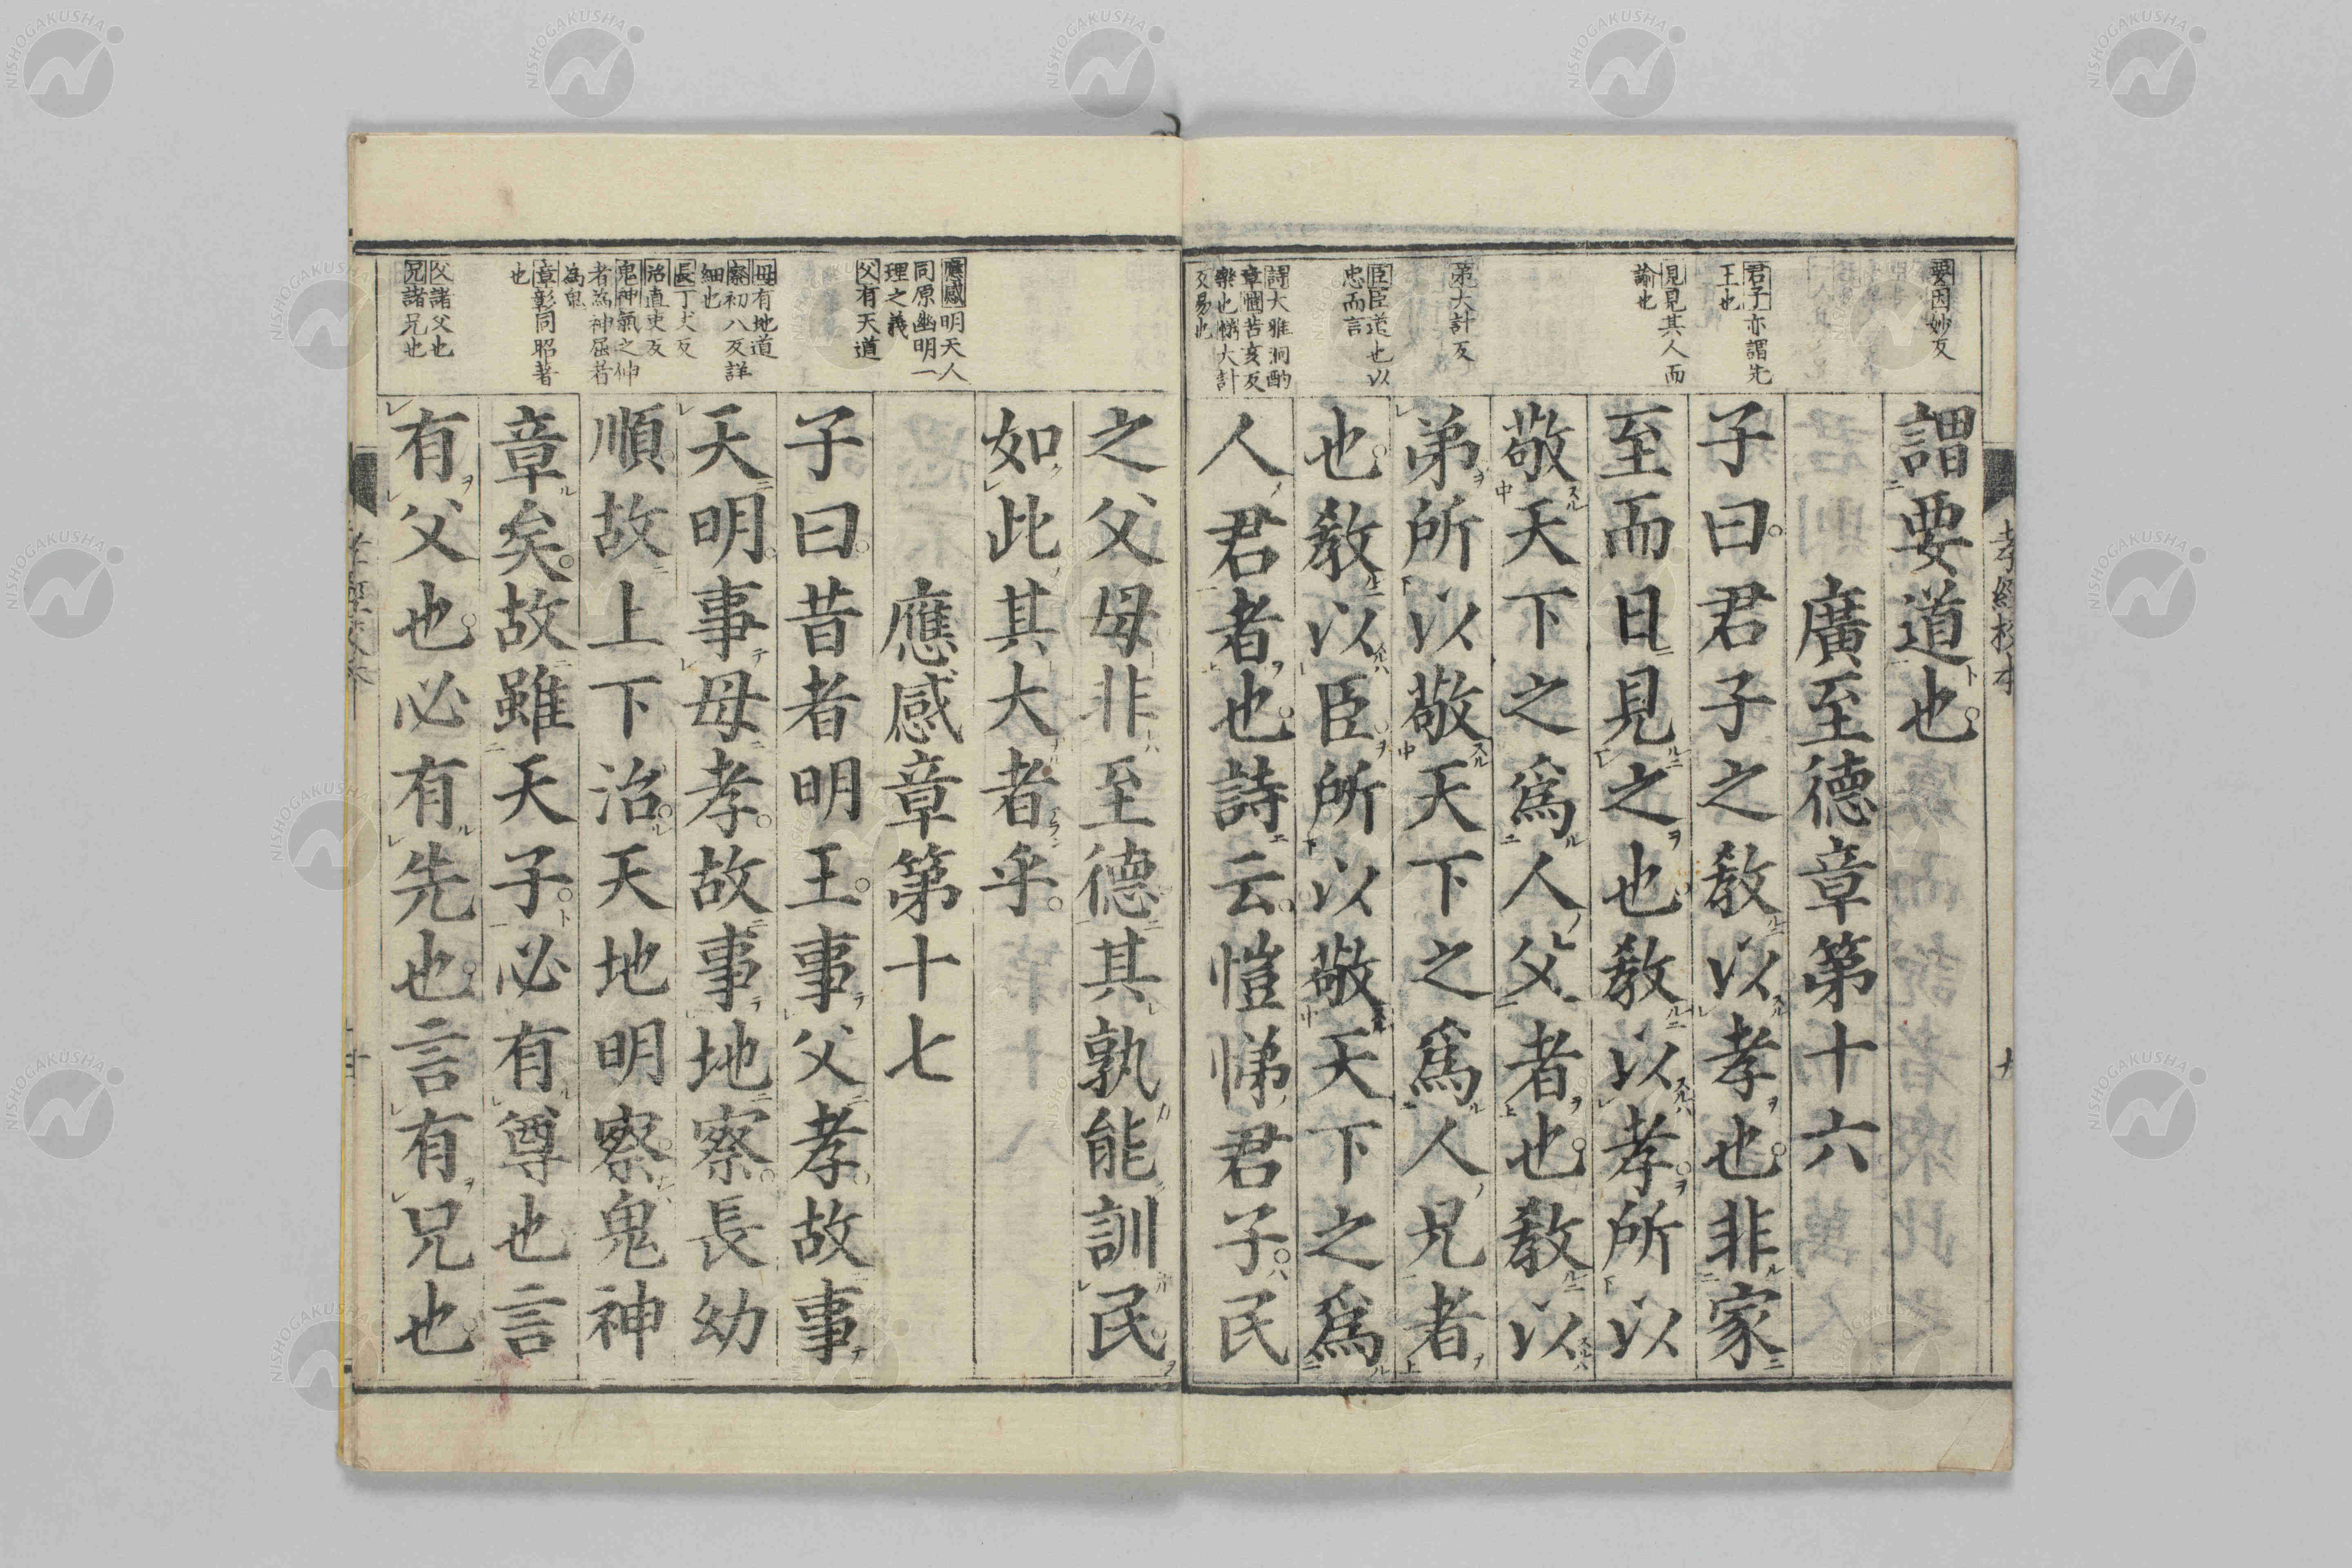 要因妙反
君子亦謂先
王也
見見其人而
諭也
弟大計反
臣臣道也以
忠而言
詩大雅泂酌
章愷苦亥反
樂也悌大計
反易也
謂要道也
廣至德章第十六
子曰君子之教以孝也非家
至而日見之也教以孝所以
敬天下之爲人父者也教以
弟所以敬天下之爲人兄者
也教以臣所以敬天下之爲
人君者也詩云愷悌君子民
孝經校本
十
應感明天人
同原幽明一
理之義
父有天道
母有地道
察初八反詳
細也
長丁丈反
治直吏反
鬼神氣之伸
者為神屈者
為鬼
章彰同昭著
也
父諸父也
兄諸兄也
之父母非至德其孰能訓民
如此其大者乎
應感章第十七
子曰昔者明王事父孝故事
天明事母孝故事地察長幼
順故上下治天地明察鬼神
章矣故雖天子必有尊也言
有父也必有先也言有兄也
NISHOGAKUSHA